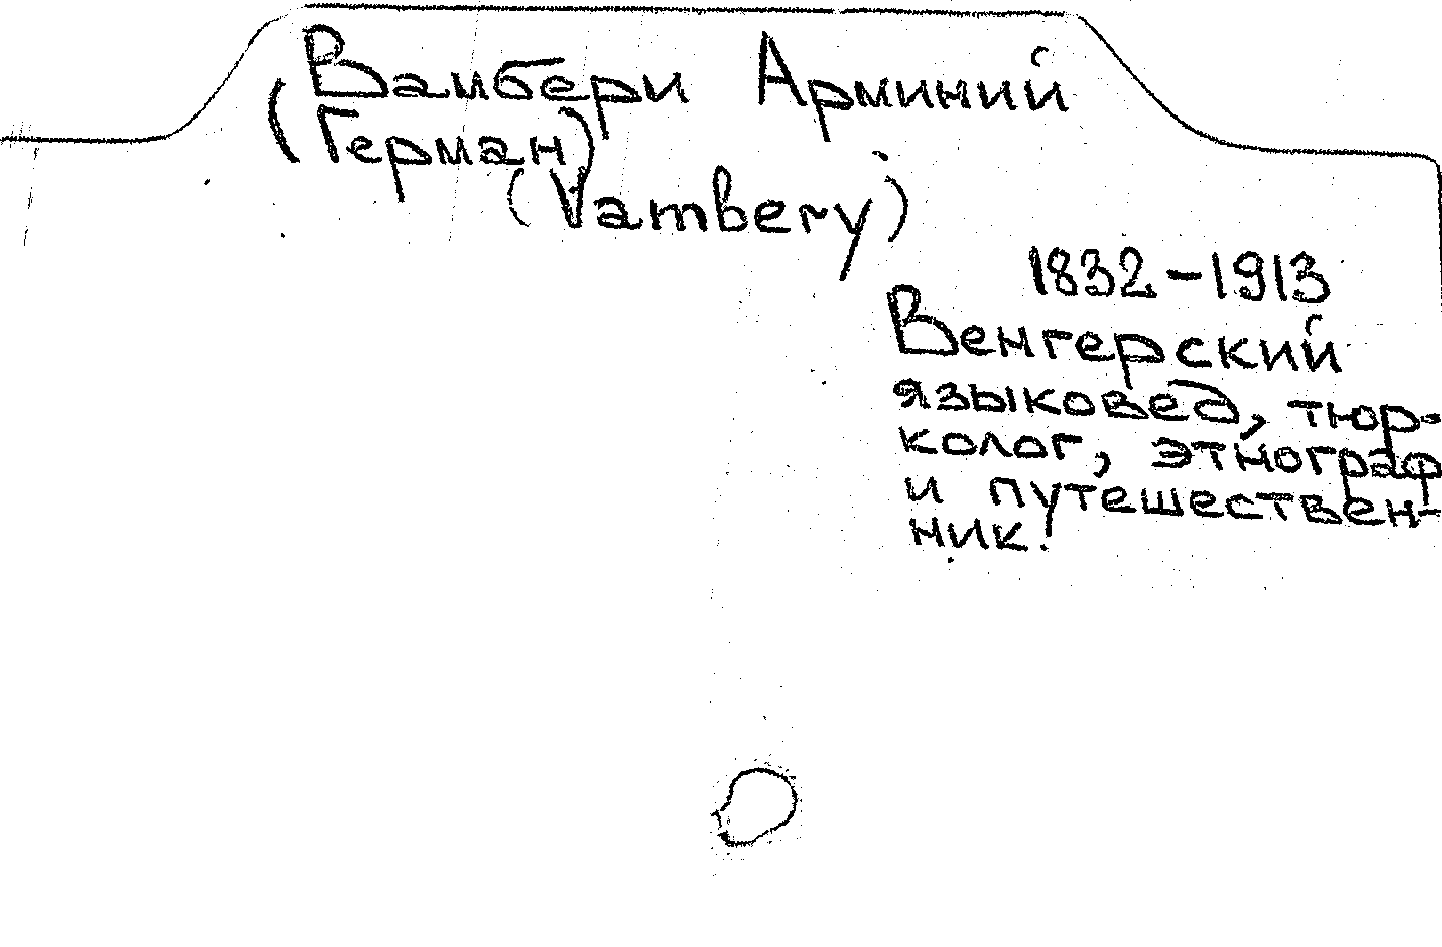 Вамбери Арминий
(Герман)
(Vambery)
1832-1913
Венгерский
языковед, тюр-
колог, этнограф
и путешествен-
ник.